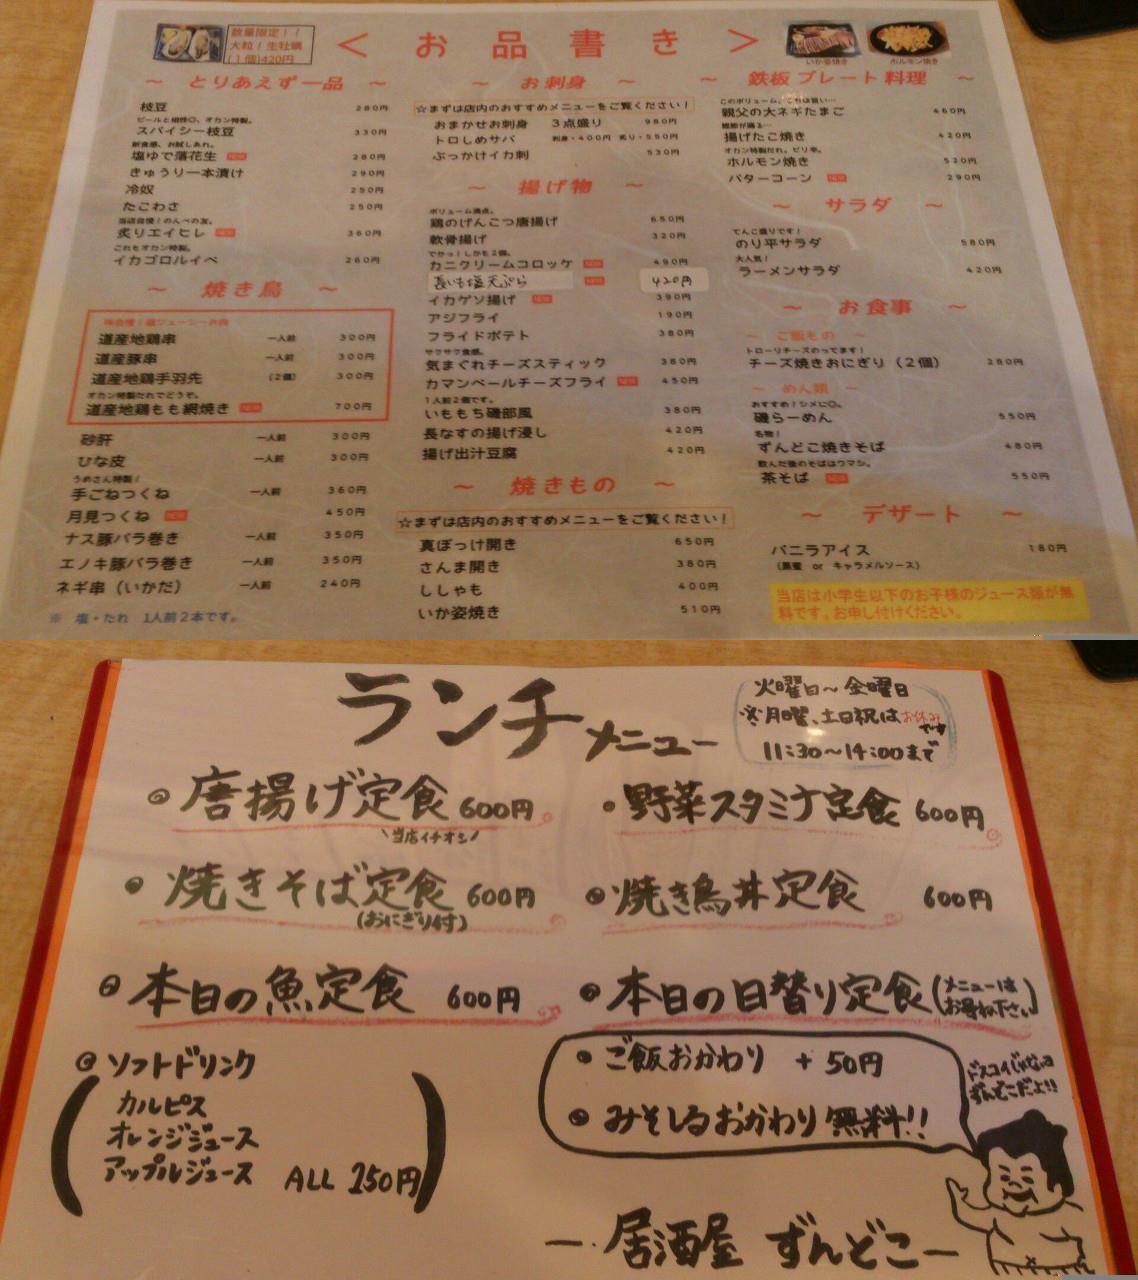 数量限定！！
大粒！生牡蠣
（１個）420円
＜ お 品 書 き ＞
いか姿焼き
ホルモン焼き
～ とりあえず一品 ～
枝豆 280円
ビールと相性◎、オカン特製。
スパイシー枝豆 330円
新食感、お試しあれ。
塩ゆで落花生 NEW 280円
きゅうり一本漬け 290円
冷奴 250円
たこわさ 250円
当店自慢！のんべの友。
炙りエイヒレ NEW 360円
これもオカン特製。
イカゴロルイベ 260円
～ 焼き鳥 ～
道産地鶏串 一人前 300円
道産豚串 一人前 300円
道産地鶏手羽先 （２個） 300円
オカン特製だれでどうぞ。
道産地鶏もも網焼き NEW 700円
砂肝 一人前 300円
ひな皮 一人前 300円
うめさん特製！
手ごねつくね 一人前 360円
月見つくね NEW 450円
ナス豚バラ巻き 一人前 350円
エノキ豚バラ巻き 一人前 350円
ネギ串（いかだ） 一人前 240円
※ 塩・たれ １人前２本です。
～ お刺身 ～
☆まずは店内のおすすめメニューをご覧ください！
おまかせお刺身 ３点盛り 980円
トロしめサバ 刺身・400円 炙り・550円
ぶっかけイカ刺 530円
～ 揚げ物 ～
ボリューム満点。
鶏のげんこつ唐揚げ 650円
軟骨揚げ 320円
でかっ！しかも２個。
カニクリームコロッケ NEW 490円
長いも塩天ぷら NEW 420円
イカゲソ揚げ NEW 390円
アジフライ 190円
フライドポテト 380円
サクサク食感。
気まぐれチーズスティック 380円
カマンベールチーズフライ NEW 450円
１人前２個です。
いももち磯部風 380円
長なすの揚げ浸し 420円
揚げ出汁豆腐 420円
～ 焼きもの ～
☆まずは店内のおすすめメニューをご覧ください！
真ほっけ開き 650円
さんま開き 380円
ししゃも 400円
いか姿焼き 510円
～ 鉄板 プレート 料理 ～
親父の大ネギたまご 460円
揚げたこ焼き 420円
オカン特製だれ。ピリ辛。
ホルモン焼き 520円
バターコーン NEW 290円
～ サラダ ～
てんこ盛りです！
のり平サラダ 580円
大人気！
ラーメンサラダ 420円
～ お食事 ～
～ ご飯もの ～
トローリチーズのってます！
チーズ焼きおにぎり（２個） 280円
～ めん類 ～
おすすめ！シメに◎。
磯らーめん 550円
名物！
ずんどこ焼きそば 480円
飲んだ後のそばはウマシ。
茶そば NEW 550円
～ デザート ～
バニラアイス 180円
（黒蜜 or キャラメルソース）
当店は小学生以下のお子様のジュース類が無
料です。お申し付けください。
ランチメニュー
火曜日～金曜日
※月曜、土日祝はお休みです
11:30～14:00まで
唐揚げ定食 600円
\当店イチオシ/
野菜スタミナ定食 600円
焼きそば定食 600円
(おにぎり付)
焼き鳥丼定食 600円
本日の魚定食 600円
本日の日替り定食(メニューは
お尋ね下さい)
ソフトドリンク
(カルピス
オレンジジュース
アップルジュース ALL 150円)
ご飯おかわり ＋50円
みそしるおかわり 無料!!
ドスコイじゃないよ
ずんどこだよ!!
―・居酒屋 ずんどこ―